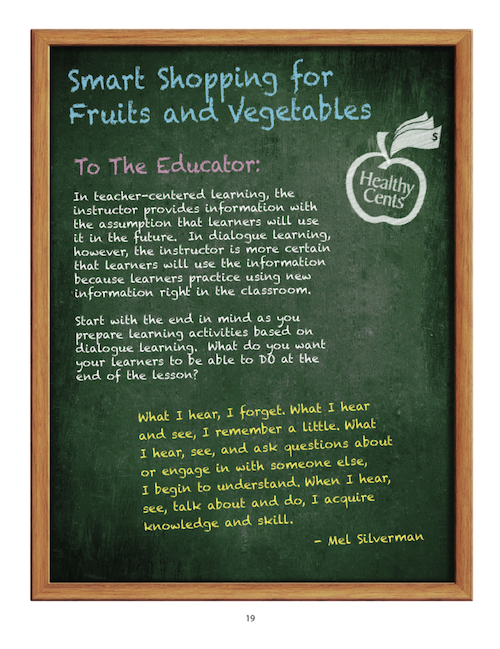 Smart Shopping for
Fruits and Vegetables
$
Healthy
Cents
To The Educator:
In teacher-centered learning, the
instructor provides information with
the assumption that learners will use
it in the future.  In dialogue learning,
however, the instructor is more certain
that learners will use the information
because learners practice using new
information right in the classroom.
Start with the end in mind as you
prepare learning activities based on
dialogue learning.  What do you want
your learners to be able to DO at the
end of the lesson?
What I hear, I forget. What I hear
and see, I remember a little. What
I hear, see, and ask questions about
or engage in with someone else,
I begin to understand. When I hear,
see, talk about and do, I acquire
knowledge and skill.
- Mel Silverman
19